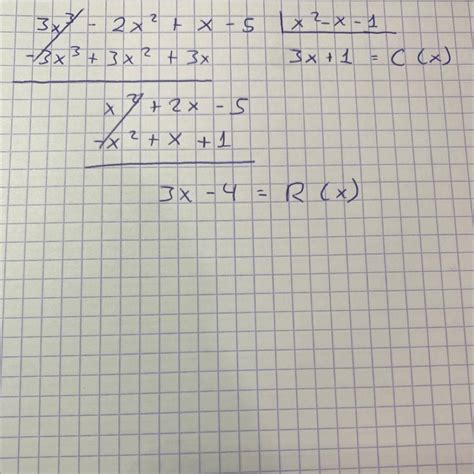 3x³ - 2x² + x - 5 | x² - x - 1
-3x³ + 3x² + 3x 3x + 1 = C (x)
x² + 2x - 5
-x² + x + 1
3x - 4 = R (x)